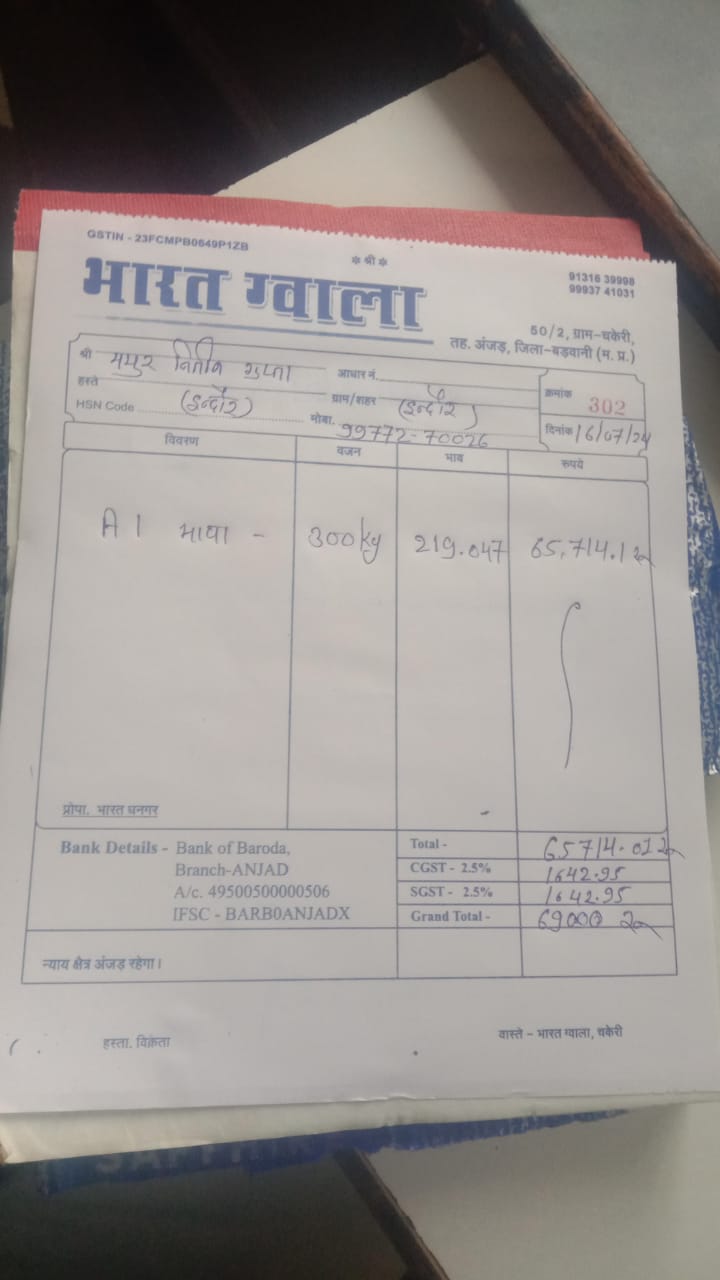 GSTIN - 23FCMPB0649P1ZB
* श्री *
91316 39998
99937 41031
भारत ग्वाला
50/2, ग्राम-चकेरी,
तह. अंजड़, जिला-बड़वानी (म. प्र.)
श्री मयुर नितीन गुप्ता आधार नं.
हस्ते (इन्दौर) ग्राम/शहर (इन्दौर)
HSN Code मोबा. 99772-70026
क्रमांक 302
दिनांक 16/07/24
विवरण वजन भाव रुपये
A1 मावा - 300kg 219.047 65,714.1
प्रोपा. भारत धनगर
Bank Details - Bank of Baroda,
Branch-ANJAD
A/c. 49500500000506
IFSC - BARB0ANJADX
Total - 65714.01
CGST - 2.5% 1642.95
SGST - 2.5% 1642.95
Grand Total - 69000
न्याय क्षेत्र अंजड़ रहेगा।
हस्ता. विक्रेता
वास्ते - भारत ग्वाला, चकेरी